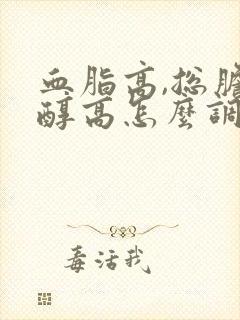 血脂高,总膽
醇高怎麼調
毒活我